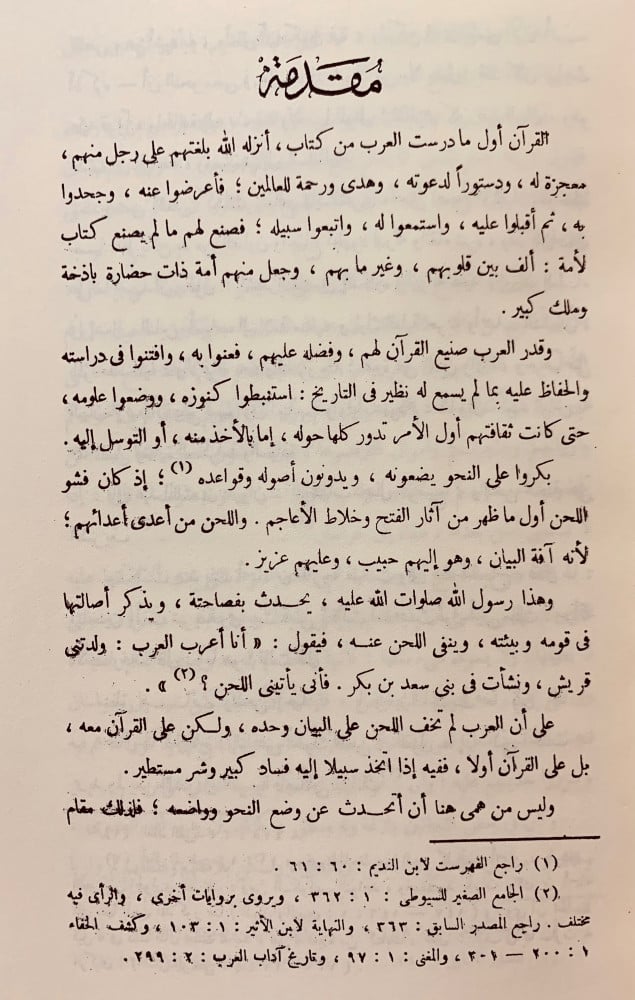 مُقَدِّمَةٌ
القرآن أول ما درست العرب من كتاب ، أنزله الله بلغتهم على رجل منهم ،
معجزة له ، ودستوراً لدعوته ، وهدى ورحمة للعالمين ؛ فأعرضوا عنه ، وجحدوا
به ، ثم أقبلوا عليه ، واستمعوا له ، واتبعوا سبيله ؛ فصنع لهم ما لم يصنع كتاب
لأمة : ألف بين قلوبهم ، وغير ما بهم ، وجعل منهم أمة ذات حضارة باذخة
وملك كبير .
وقدر العرب صنيع القرآن لهم ، وفضله عليهم ، فعنوا به ، وافتنوا فى دراسته
والحفاظ عليه بما لم يسمع له نظير فى التاريخ : استنبطوا كنوزه ، ووضعوا علومه ،
حتى كانت ثقافتهم أول الأمر تدور كلها حوله ، إما بالأخذ منه ، أو التوسل إليه .
بكروا على النحو يضعونه ، ويدونون أصوله وقواعده (١) ؛ إذ كان فشو
اللحن أول ما ظهر من آثار الفتح وخلاط الأعاجم . واللحن من أعدى أعدائهم ؛
لأنه آفة البيان ، وهو إليهم حبيب ، وعليهم عزيز .
وهذا رسول الله صلوات الله عليه ، يحدث بفصاحتة ، ويذكر أصالتها
فى قومه وبيئته ، وينفى اللحن عنه ، فيقول : « أنا أعرب العرب : ولدتنى
قريش ، ونشأت فى بنى سعد بن بكر . فأنى يأتينى اللحن ؟ (٢) » .
على أن العرب لم تخف اللحن على البيان وحده ، ولكن على القرآن معه ،
بل على القرآن أولا ، ففيه إذا اتخذ سبيلا إليه فساد كبير وشر مستطير .
وليس من همى هنا أن أتحدث عن وضع النحو وواضعه ؛ فلذلك مقام
(١) راجع الفهرست لابن النديم : ٦٠ : ٦١ .
(٢) الجامع الصغير للسيوطى : ١ : ٣٦٢ ، ويروى بروايات أخرى ، والرأى فيه
مختلف . راجع المصدر السابق : ٣٦٣ ، والنهاية لابن الأثير : ١ : ١٠٣ ، وكشف الخفاء
١ : ٢٠٠ — ٢٠١ ، والمغنى : ١ : ٩٧ ، وتاريخ آداب العرب : ٢ : ٢٩٩ .